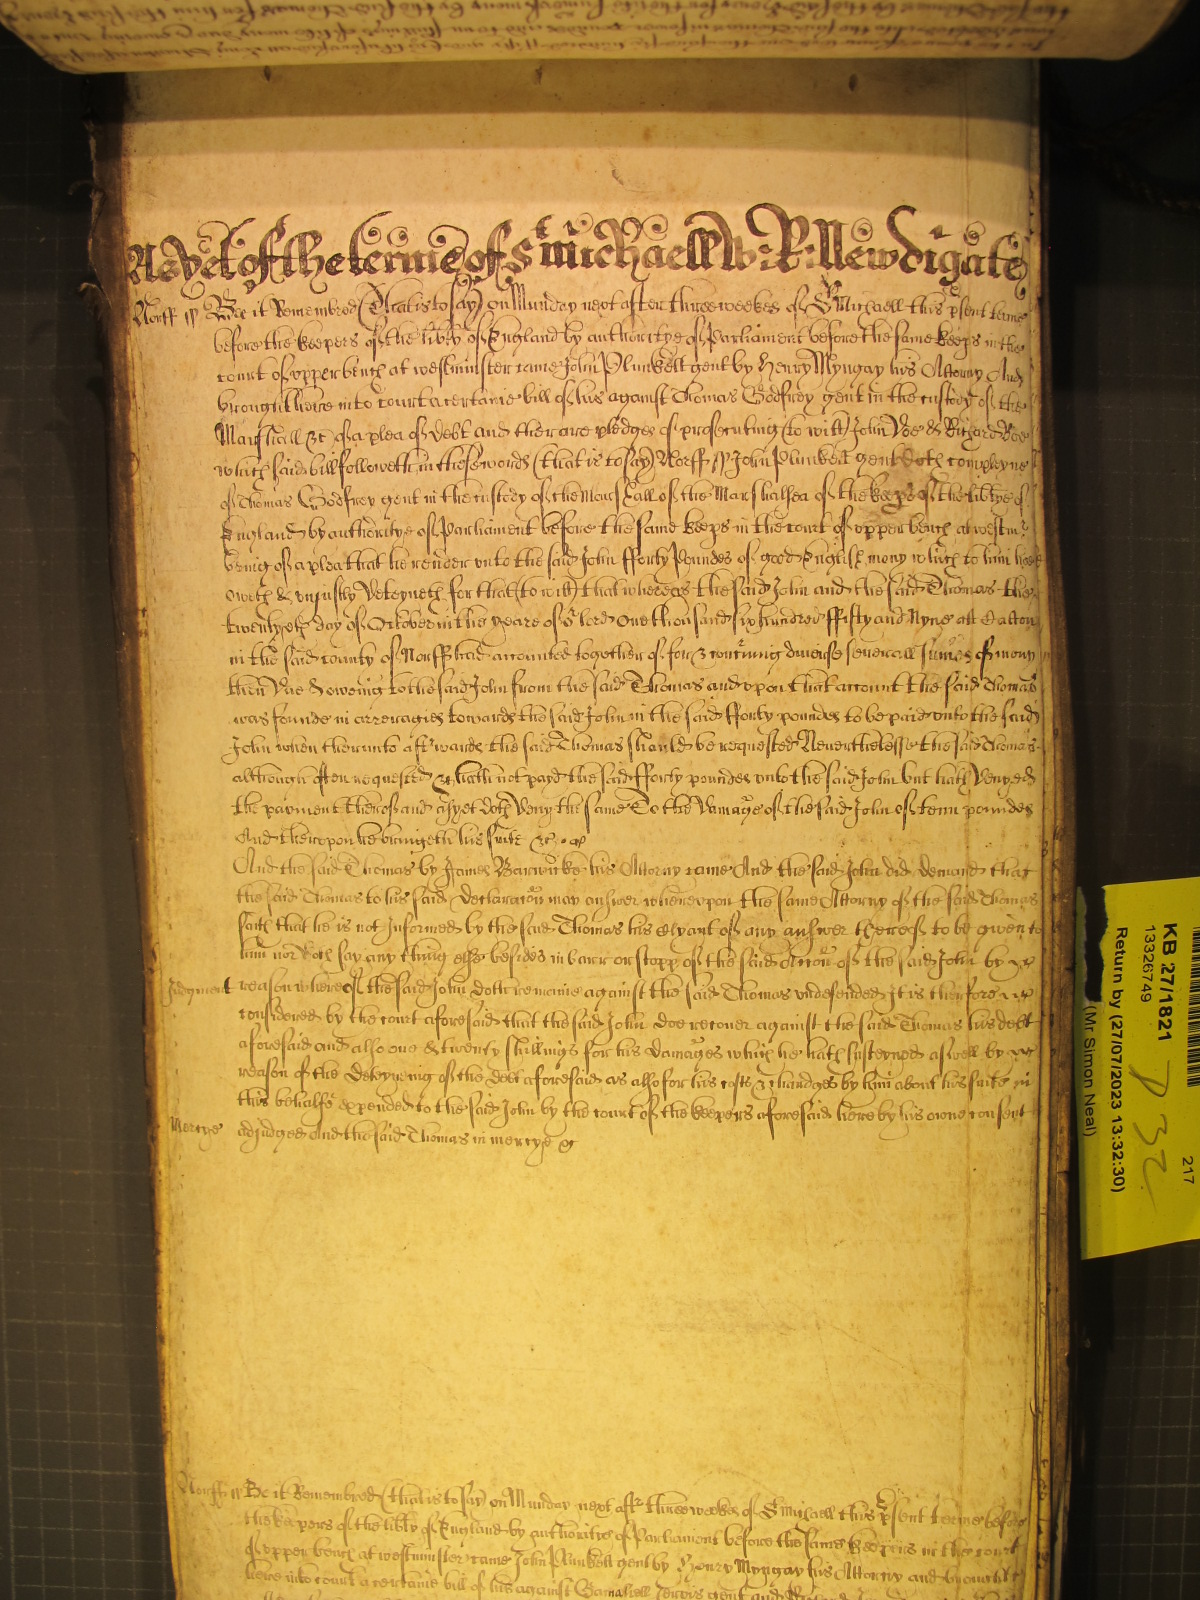 As yet of the terme of S Michaell W: R: Newdigate
Norff ss Bee it Remembred (That is to say) on Munday next after three weekes of St Michaell this psent terme
before the keepers of the libty of England by authoritye of Parliament before the same keeps in the
court of upper bench at westminster came John Plunkett gent by Henry Myngay his Attorny And
brought here into court a certaine bill of his against Thomas Godfrey gent in the custody of the
Marshall &c of a plea of debt and there are pledges of prosecuting (to witt) John Doe & Richard Roe
which said bill followeth in these words (that is to say) Norff ss John Plunkett gent doth complayne
of Thomas Godfrey gent in the custody of the Marshall of the Marshalsea of the keeps of the libtye of
England by authoritye of Parliament before the same keeps in the court of upper bench at westm
being of a plea that he render unto the said John fforty Poundes of good English mony which to him hee
oweth & uniustly deteyneth for that (to witt) that whereas the said John and the said Thomas the
twentyeth day of October in the yeare of or lord one thousand six hundred ffifty and Nyne att Catton
in the said county of Norff had accounted together of for & concning diverse severall sumes of mony
then due & oweing to the said John from the said Thomas and upon that account the said Thomas
was founde in arrerages towards the said John in the said fforty poundes to be paid unto the said
John when thereunto afterwards the said Thomas should be requested Neverthelesse the said Thomas
although often requested &c hath not payd the said fforty poundes unto the said John but hath denyed
the payment thereof and as yet doth deny the same To the damage of the said John of tenn poundes
And thereupon he bringeth his suite &c
And the said Thomas by James Barwicke his Attorny came And the said John did demand that
the said Thomas to his said declaracon may answer whereupon the same Attorny of the said Thomas
saith that he is not Informed by the said Thomas his Clyant of any answer thereof to be given to
him nor doth say any thing else besides in barr or stopp of the said Accon of the said John by
Judgment reason whereof the said John doth remaine against the said Thomas undefended It is therfore
considered by the court aforesaid that the said John doe recover against the said Thomas his debt
aforesaid and also one & twenty shillings for his damages which he hath susteyned aswell by
reason of the deteyneing of the debt aforesaid as also for his costs & chardges by him about his suite in
this behalfe expended to the said John by the court of the keepers aforesaid here by his owne consent
Mercye adjudged And the said Thomas in mercye &c
Norff ss Be it Remembred (that is to say) on Munday next aftr three weekes of St Michaell this psent terme before
the keepers of the libty of England by authoritie of Parliament before the same keepers in the court
of upper bench at westminster came John Plunkett gent by Henry Myngay his Attorny and brought
here into court a certaine bill of his against Gamaliell gent and
KB 27/1821
13326749
217
P 32
Return by (27/07/2023 13:32:30)
(Mr Simon Neal)